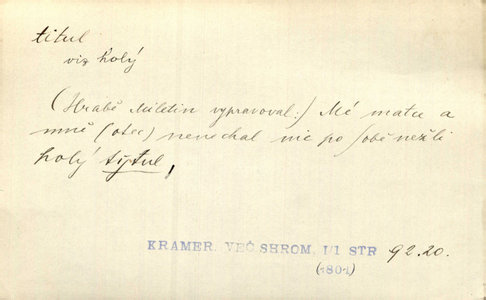 titul
viz holý
(Hrabě Miletin vypravoval:) Mé matce a
mně (otec) nenechal nic po sobě nežli
holý tytul,
KRAMER. VEČ SHROM. I/1 STR 92.20.
(1801)